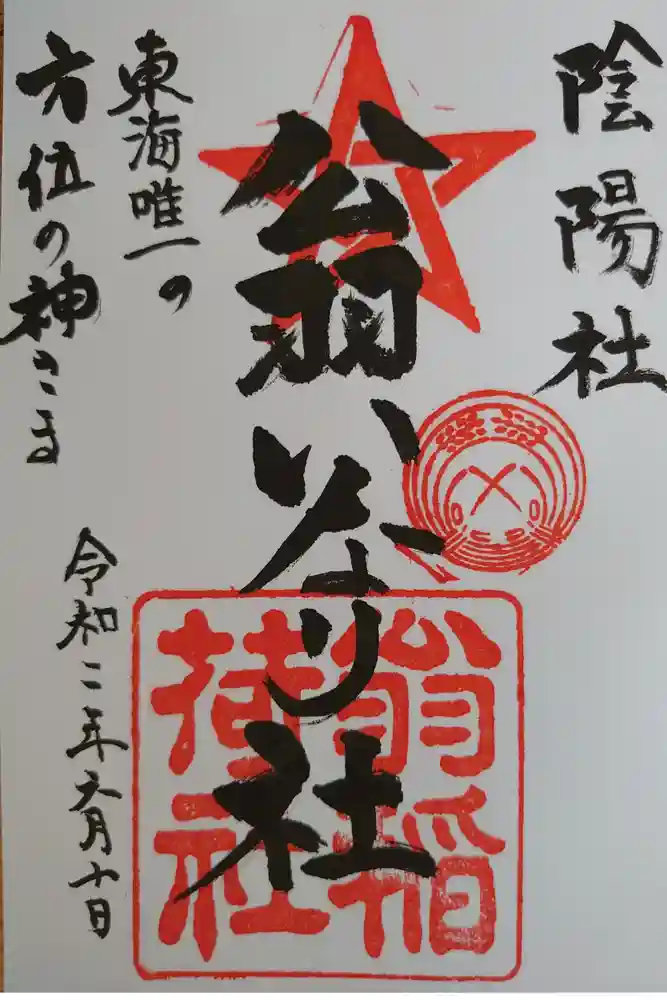 陰陽社
翁いなり社
翁稲
荷社
東海唯一の
方位の神さま
令和二年六月十日